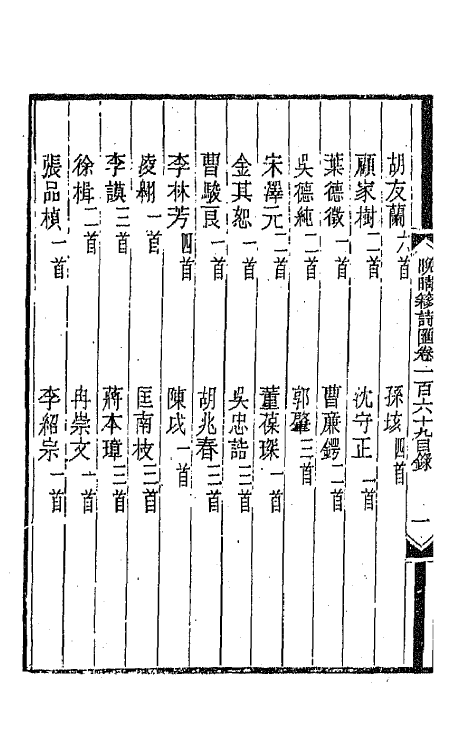 晚晴簃詩匯卷一百六十九目錄 一
胡友蘭六首 孫垓四首
顧家樹二首 沈守正一首
葉德徵一首 曹廉鍔二首
吳德純二首 郭肇三首
宋澤元二首 董葆琛一首
金其恕一首 吳忠誥三首
曹駿良一首 胡兆春三首
李林芳四首 陳戌一首
凌翙一首 匡南枝三首
李謨三首 蔣本璋三首
徐楫二首 冉崇文一首
張品楨一首 李紹宗一首